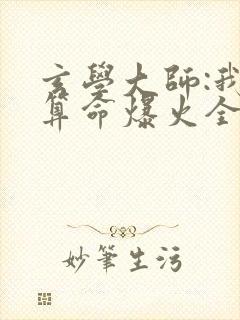 玄學大師:我
算命爆火全
妙筆生污